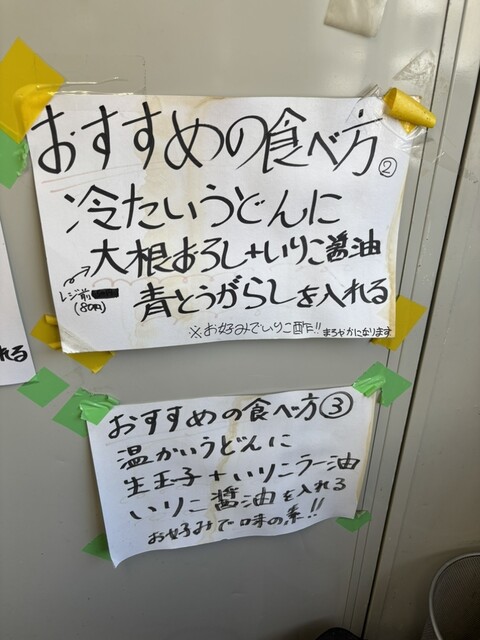 おすすめの食べ方②
冷たいうどんに
大根おろし+いりこ醤油
レジ前
(80円)
青とうがらしを入れる
※お好みでいりこ酢!! まろやかになります
れる
おすすめの食べ方③
温かいうどんに
生玉子+いりこラー油
いりこ醤油を入れる
お好みで味の素!!